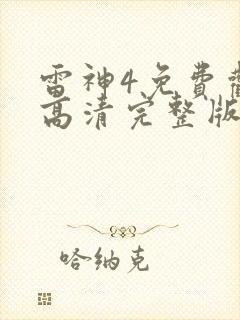 雷神4免费
高清完整版
哈纳克